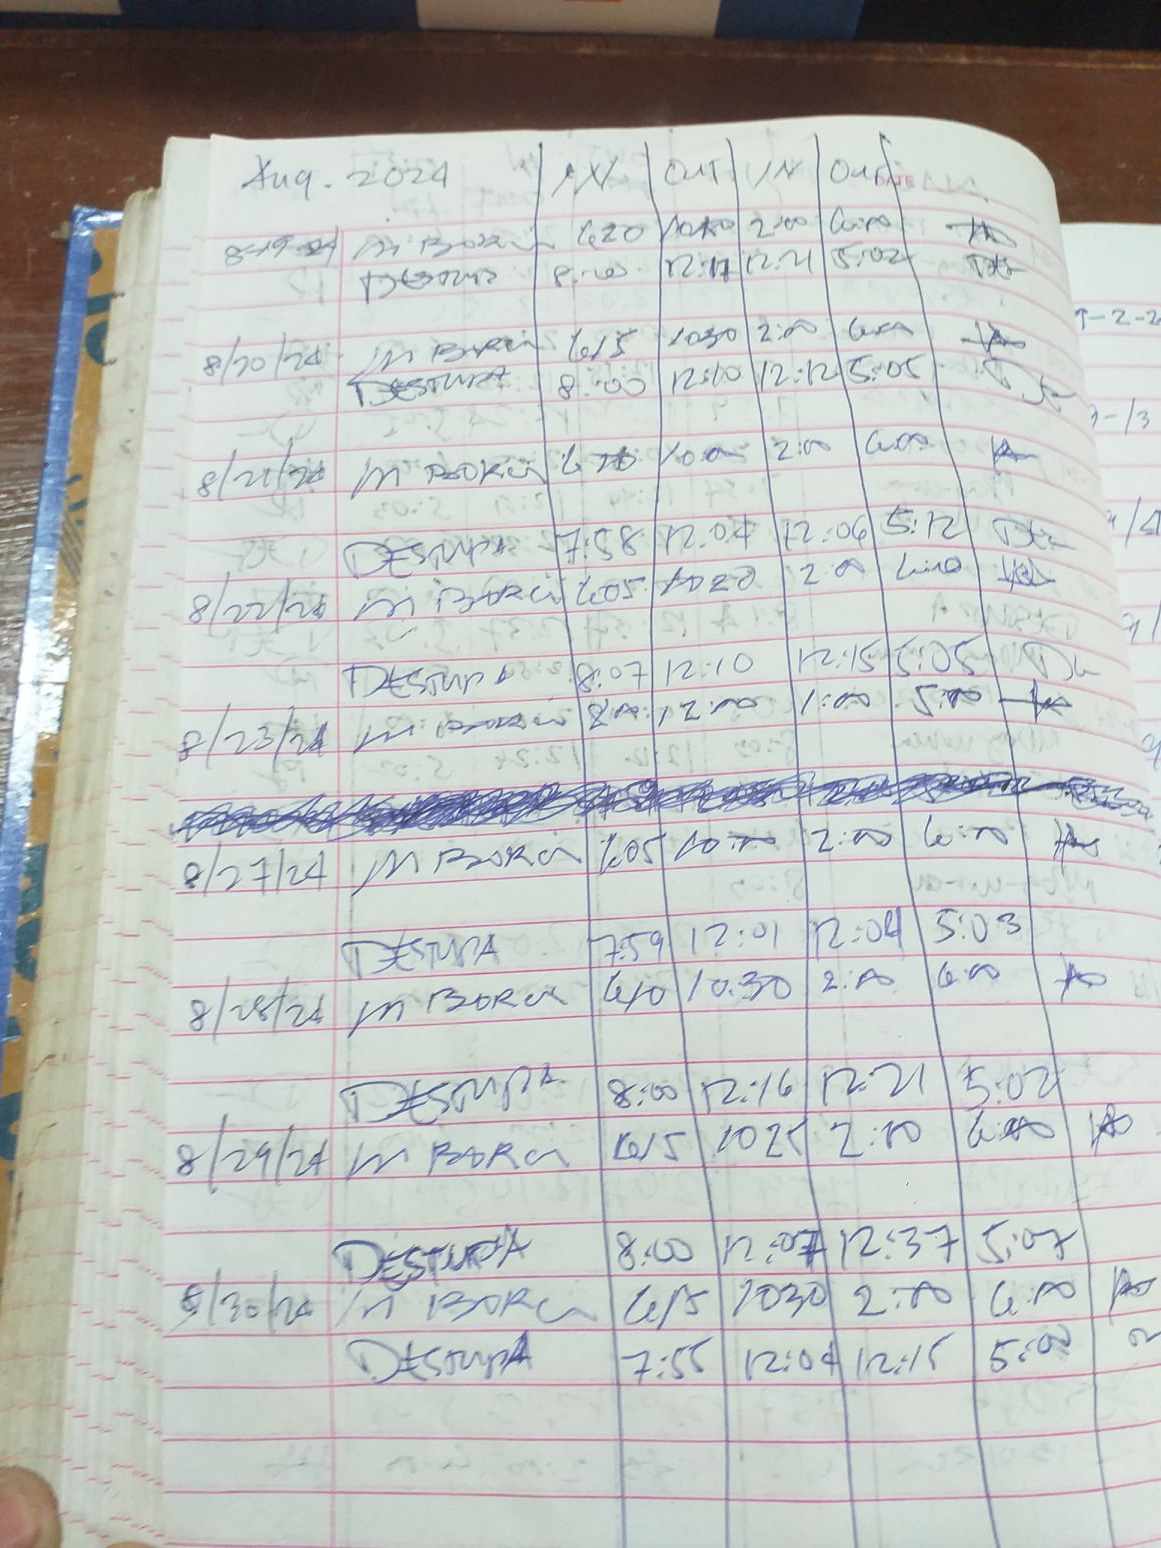 Aug. 2024 IN OUT IN OUT DATE
8-19-24 M BORCA 620 2:00 6:00
DESTUPA 8:00 12:17 12:21 5:02
8/20/24 M BORCA 615 1030 2:00 6:00
DESTUPA 8:00 12:10 12:12 5:05
8/21/24 M BORCA 10:00 2:00 6:00
DESTUPA 7:58 12:07 12:06 5:12
8/22/24 M BORCA 605 1020 2:00 6:00
DESTUPA 8:07 12:10 12:15 5:05
8/23/24 M BORCA 8:00 12:00 1:00 5:00
8/27/24 M BORCA 605 10:00 2:00 6:00
DESTUPA 7:59 12:01 12:04 5:03
8/28/24 M BORCA 610 10:30 2:00 6:00
DESTUPA 8:00 12:16 12:21 5:02
8/29/24 M BORCA 615 1025 2:00 6:00
DESTUPA 8:00 12:07 12:37 5:07
8/30/24 M BORCA 615 1030 2:00 6:00
DESTUPA 7:55 12:04 12:15 5:00